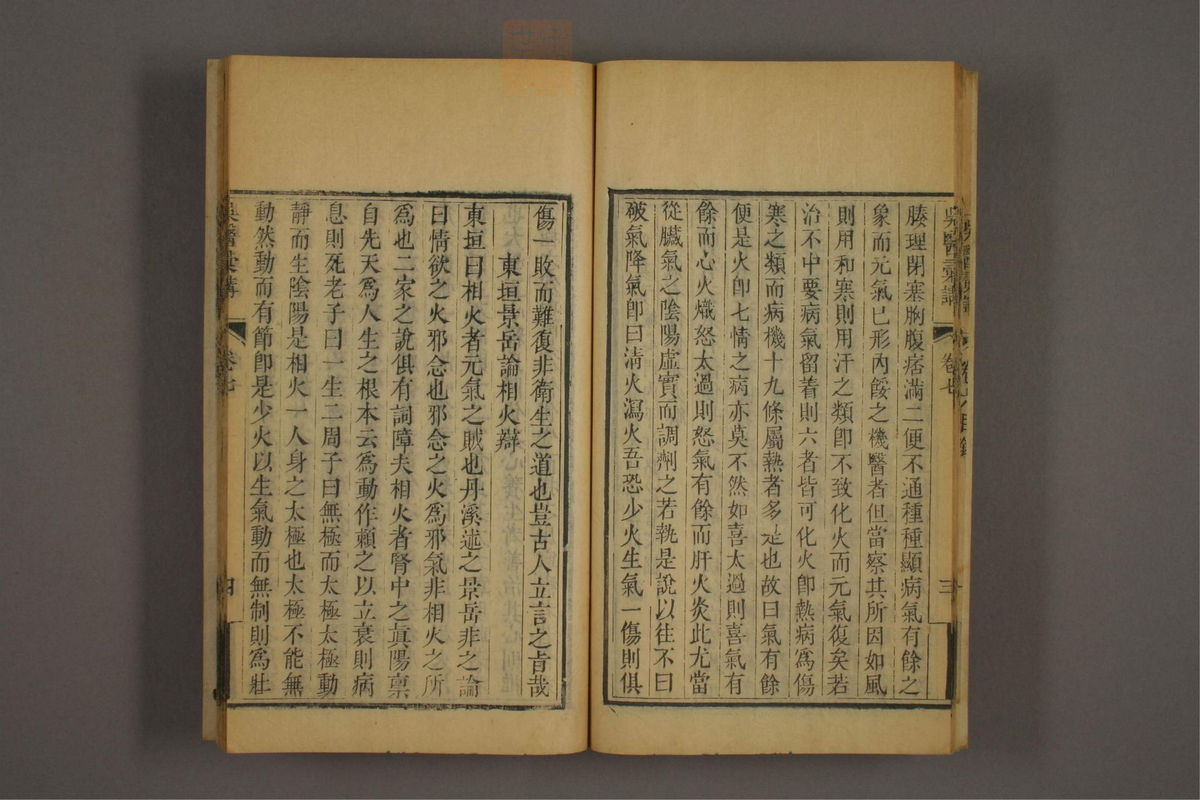 腠理閉塞胸腹痞滿二便不通種種顯病氣有餘之
象而元氣已形內餒之機醫者但當察其所因如風
則用和寒則用汗之類卽不致化火而元氣復矣若
治不中要病氣留着則六者皆可化火卽熱病爲傷
寒之類而病機十九條屬熱者多是也故曰氣有餘
便是火卽七情之病亦莫不然如喜太過則喜氣有
餘而心火熾怒太過則怒氣有餘而肝火炎此尤當
從臟氣之陰陽虛實而調劑之若執是說以往不曰
破氣降氣卽曰淸火瀉火吾恐少火生氣一傷則俱
吳醫彙講
卷七
三
傷一敗而難復非衛生之道也豈古人立言之旨哉
東垣景岳論相火辯
東垣曰相火者元氣之賊也丹溪述之景岳非之論
曰情欲之火邪念也邪念之火爲邪氣非相火之所
爲也二家之說俱有詞障夫相火者腎中之眞陽禀
自先天爲人生之根本云爲動作賴之以立衰則病
息則死老子曰一生二周子曰無極而太極太極動
靜而生陰陽是相火一人身之太極也太極不能無
動然動而有節卽是少火以生氣動而無制則爲壯
吳醫彙講
卷七
四